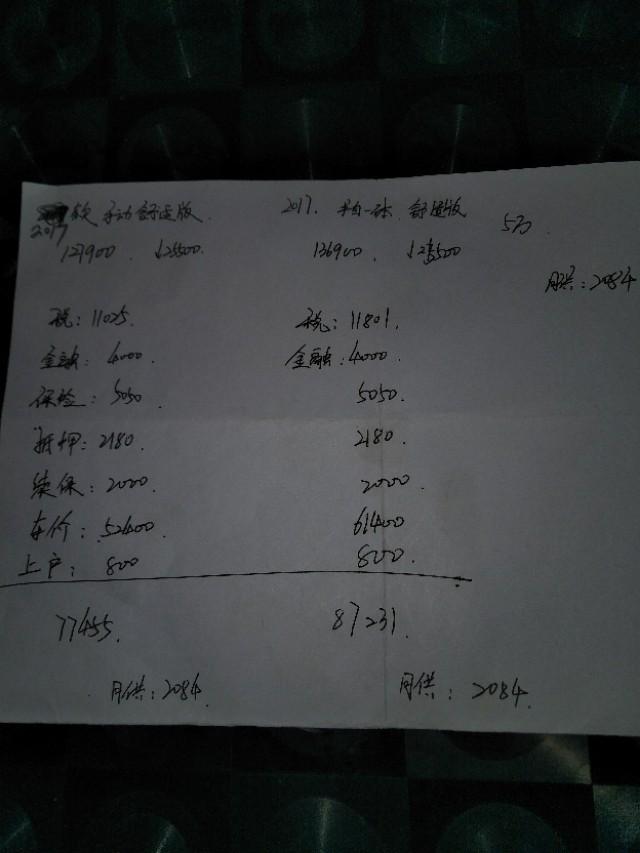 2017款 手动舒适版. 2017. 手自一体 舒适版
127900. ↓25500. 136900. ↓25500 5万.
月供:2084
税:11025. 税:11801.
金融:4000. 金融:4000.
保险:5050. 5050.
抵押:2180. 2180.
续保:2000. 2000.
车价:52400. 61400
上户:800 800.
77455. 87231.
月供:2084. 月供:2084.